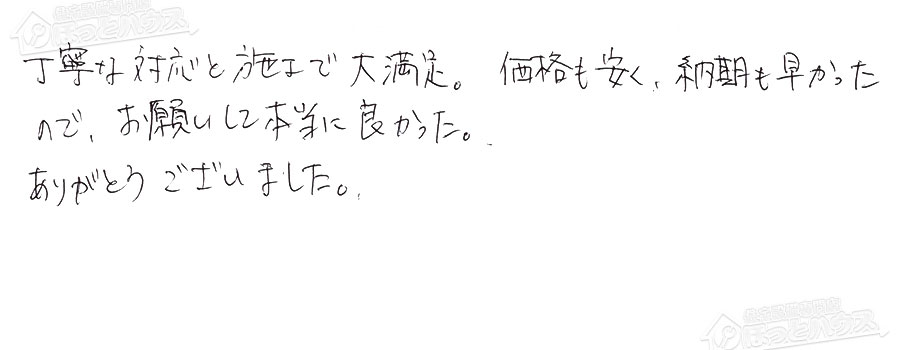 丁寧な対応と施工で大満足。 価格も安く、納期も早かった
ので、お願いして本当に良かった。
ありがとうございました。
ほっとハウス
ほっとハウス